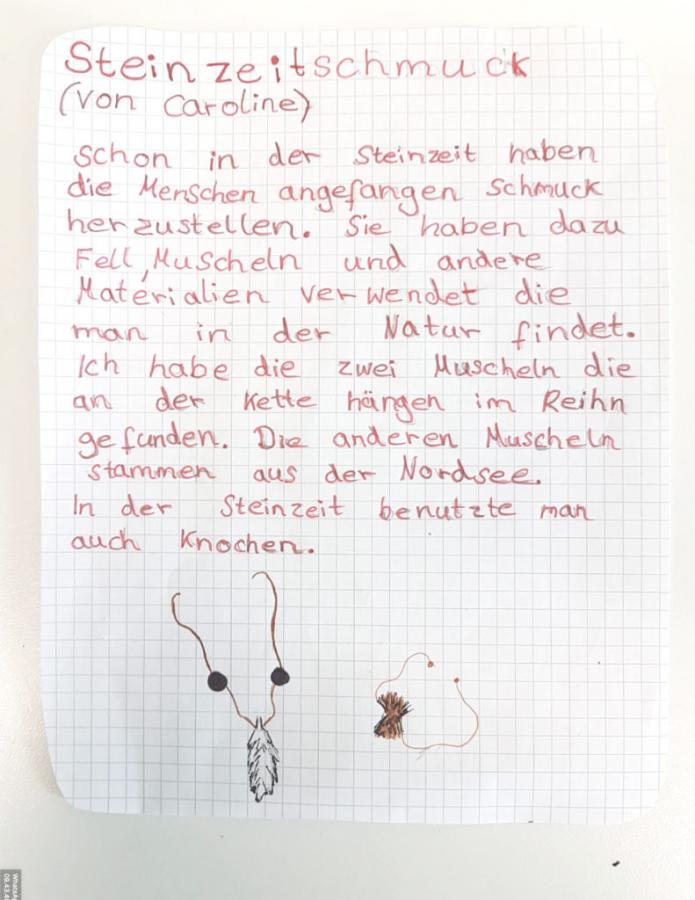 Steinzeitschmuck
(von Caroline)
Schon in der Steinzeit haben
die Menschen angefangen Schmuck
herzustellen. Sie haben dazu
Fell, Muscheln und andere
Materialien verwendet die
man in der Natur findet.
Ich habe die zwei Muscheln die
an der Kette hängen im Reihn
gefunden. Die anderen Muscheln
stammen aus der Nordsee.
In der Steinzeit benutzte man
auch Knochen.